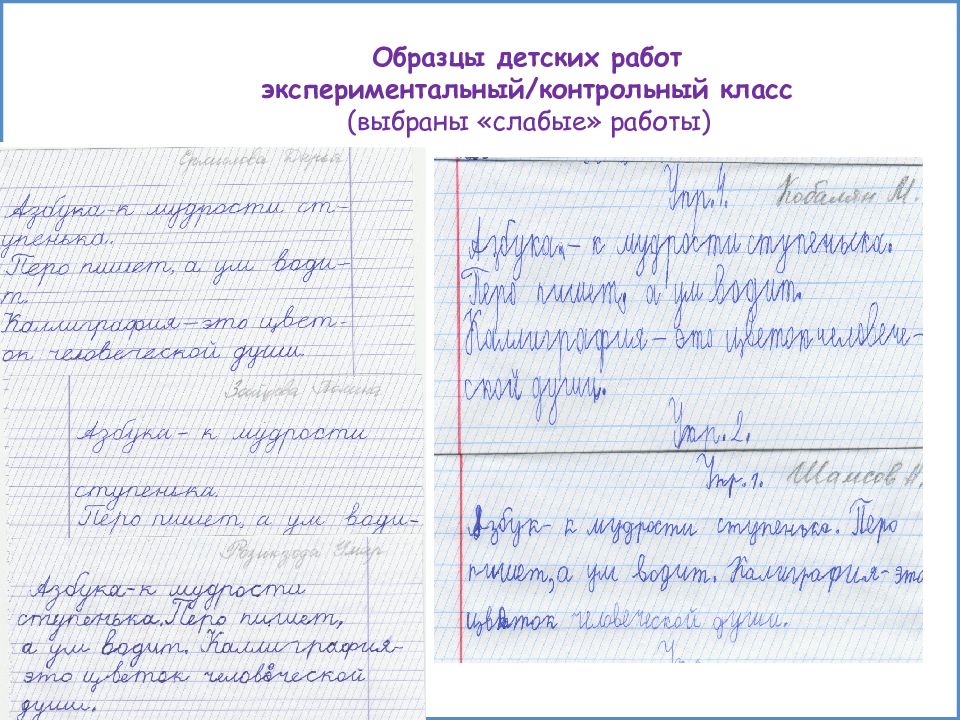 Образцы детских работ
экспериментальный/контрольный класс
(выбраны «слабые» работы)
Ермилова Дарья
Азбука-к мудрости ст-
упенька.
Перо пишет, а ум води-
т.
Каллиграфия-это цвет-
ок человеческой души.
Зайцева Полина
Азбука- к мудрости
ступенька.
Перо пишет, а ум води-
Розикзода
Азбука-к мудрости
ступенька.Перо пишет,
а ум водит. Каллиграфия-
это цветок человеческой
души.
Упр.1.
Кобалян М.
Азбука – к мудрости ступенька.
Перо пишет, а ум водит.
Каллиграфия – это цветок человече-
ской души.
Упр.2.
Упр.1.
Шамсов
Азбук- к мудрости ступенька. Перо
пишет, а ум водит. Калиграфия-это
цветок человеческой души.